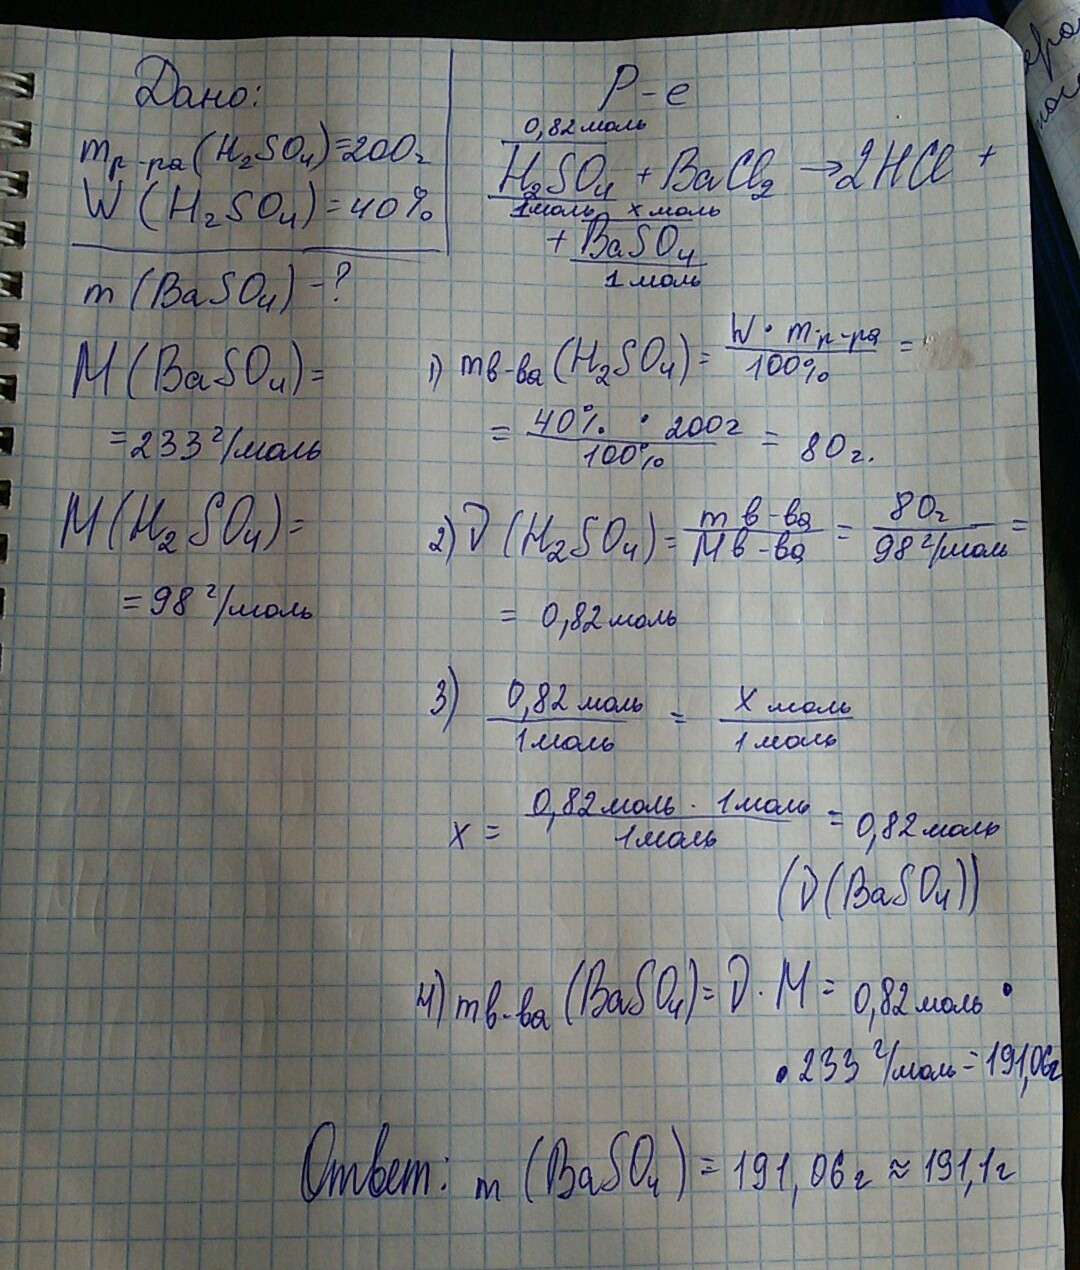 Дано:
mр-ра(H₂SO₄)=200г
W(H₂SO₄)=40%
m(BaSO₄)-?
M(BaSO₄)=
=233 г/моль
M(H₂SO₄)=
=98 г/моль
Р-е
0,82 моль
H₂SO₄ + BaCl₂ → 2HCl +
1моль x моль
+ BaSO₄
1 моль
1) mв-ва(H₂SO₄) = W · mр-ра / 100% =
= 40% · 200г / 100% = 80г.
2) ν(H₂SO₄) = m в-ва / M в-ва = 80г / 98 г/моль =
= 0,82 моль
3) 0,82 моль / 1 моль = x моль / 1 моль
x = 0,82 моль · 1 моль / 1 моль = 0,82 моль
(ν(BaSO₄))
4) mв-ва(BaSO₄) = ν · M = 0,82 моль ·
· 233 г/моль = 191,06г
Ответ: m(BaSO₄) = 191,06г ≈ 191,1г